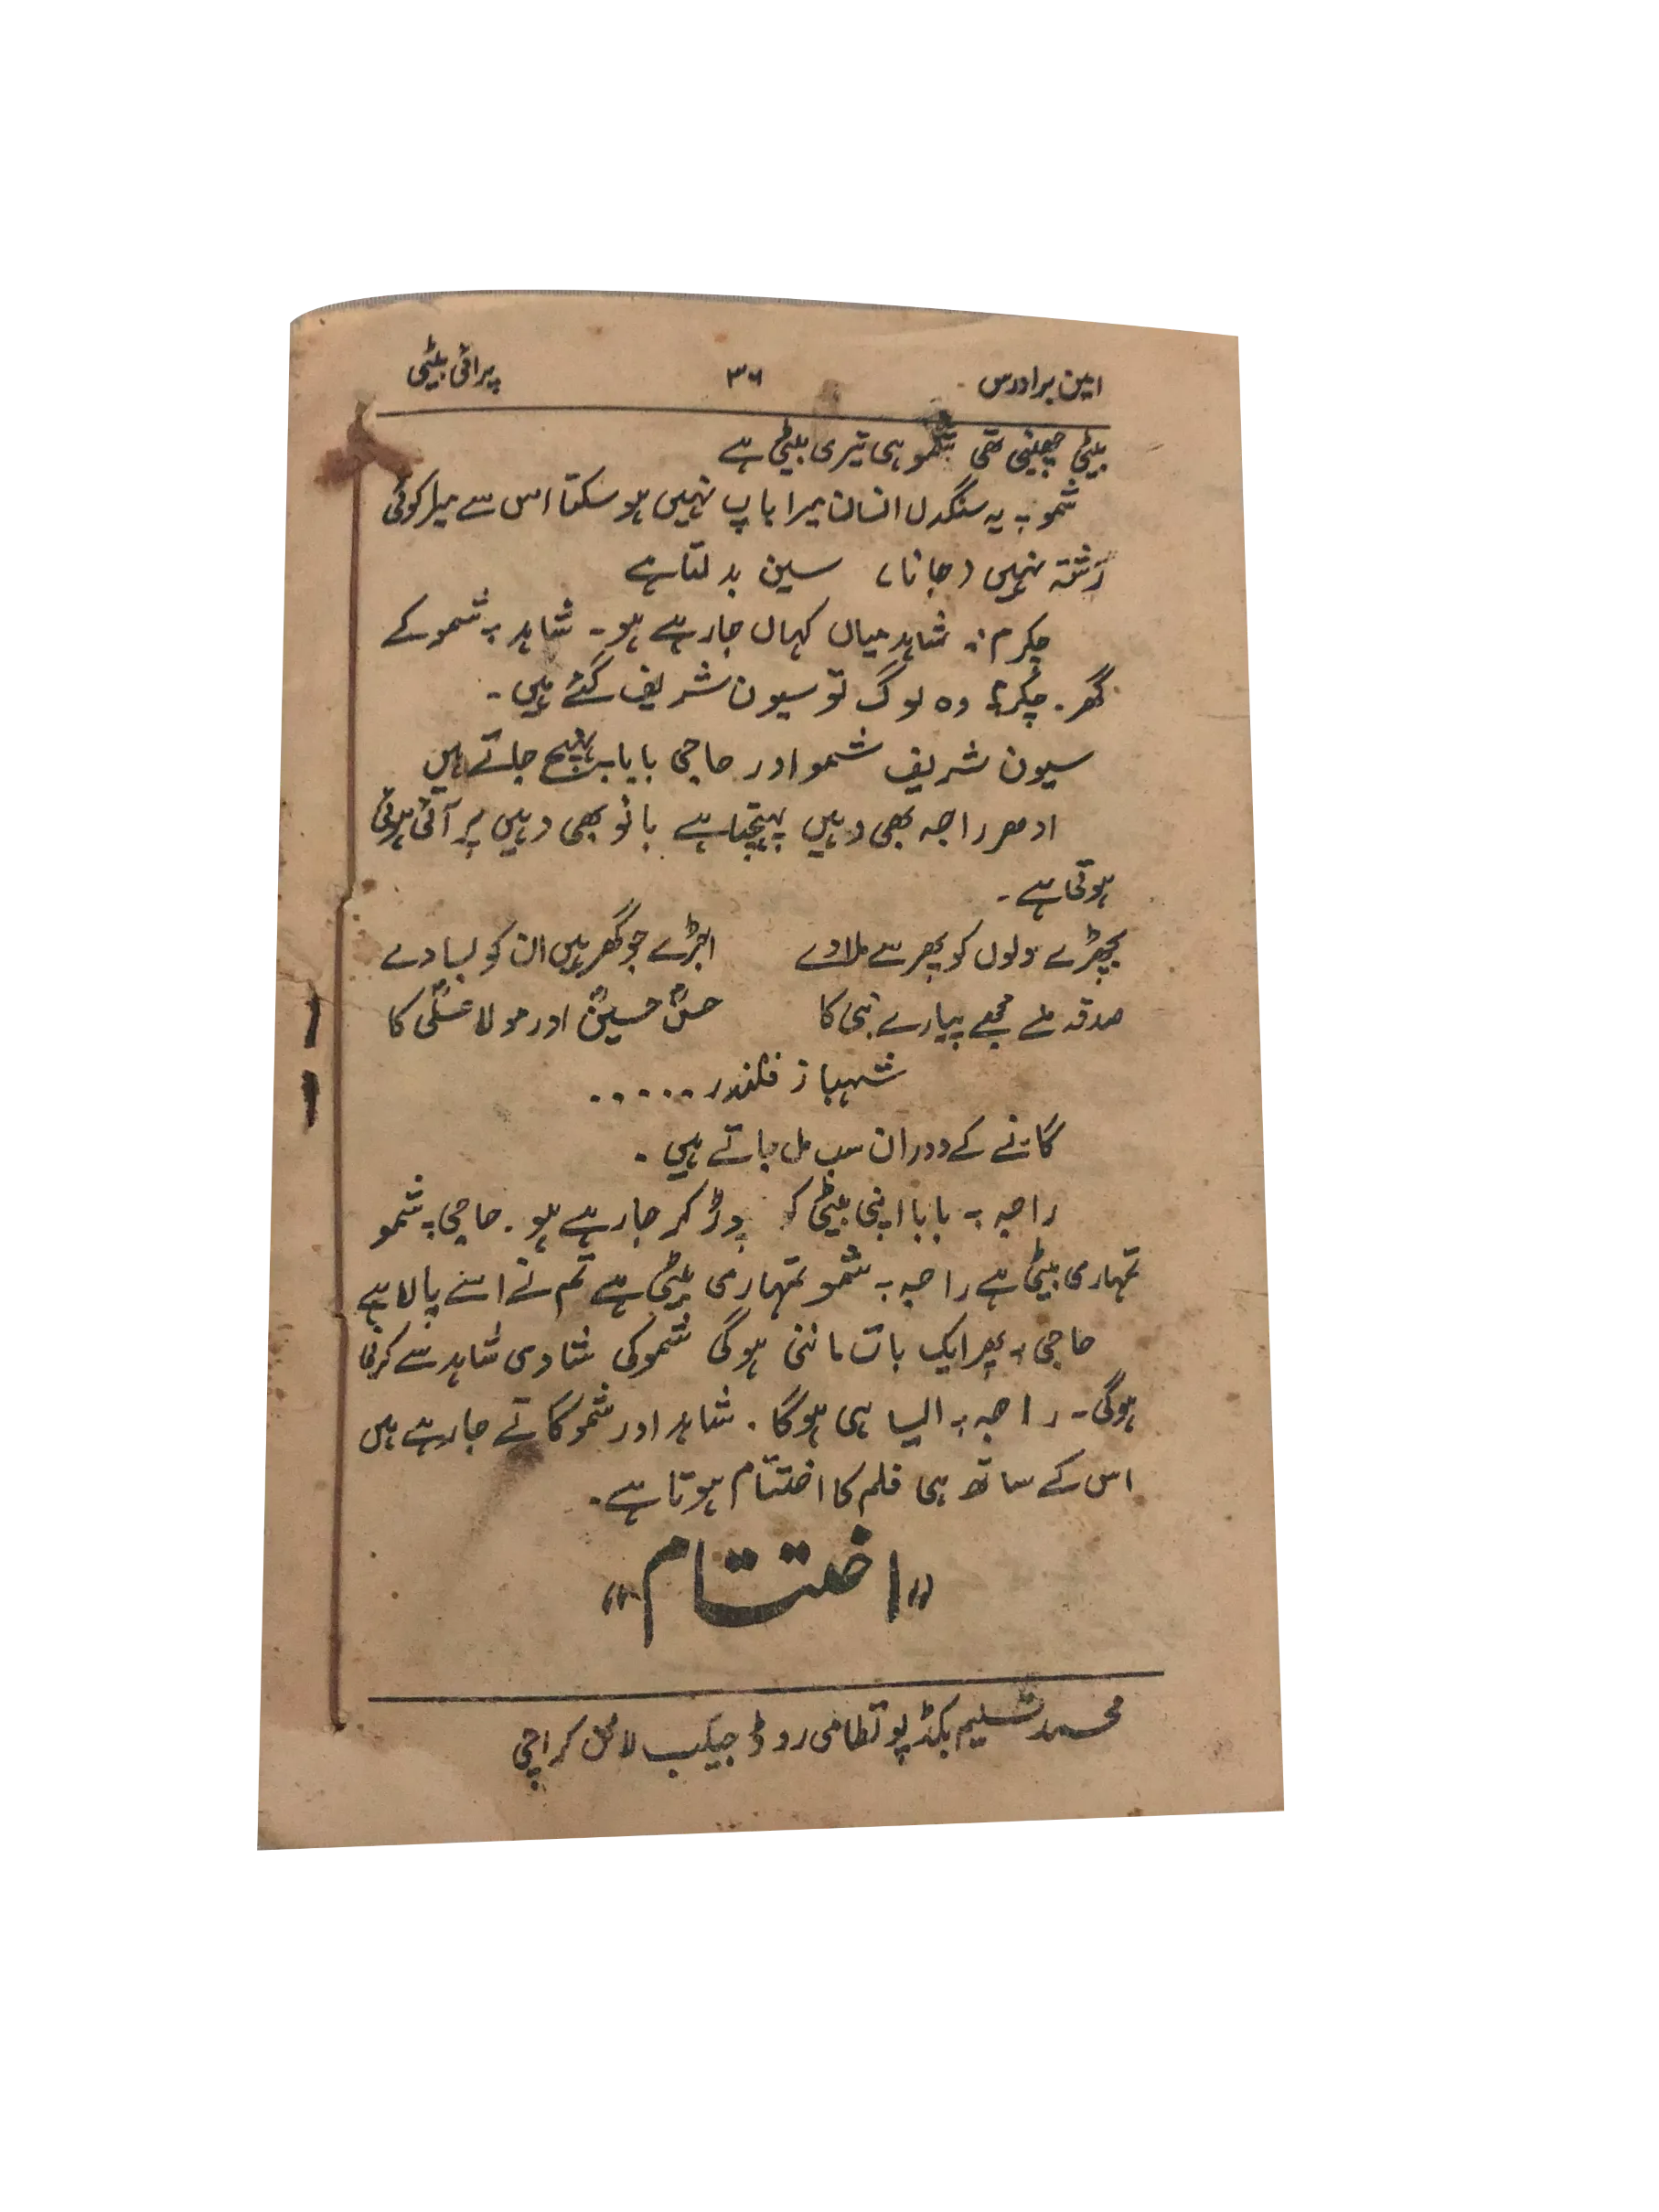 امین برادرس ۳۶ پرائی بیٹی
بیٹی چھینی تھی شمو ہی تیری بیٹی ہے
شمو :۔ یہ سنگدل انسان میرا باپ نہیں ہو سکتا اس سے میرا کوئی
رشتہ نہیں (جانا) سین بدلتا ہے
چکرم :۔ شاہد میاں کہاں جا رہے ہو ۔ شاہد :۔ شمو کے
گھر ۔ چکرم :۔ وہ لوگ تو سیون شریف گئے ہیں ۔
سیون شریف شمو اور حاجی بابا پہنچ جاتے ہیں
ادھر راجہ بھی وہیں پہنچتا ہے بانو بھی وہیں پر آئی ہوئی
ہوتی ہے ۔
بچھڑے دلوں کو پھر سے ملادے اجڑے جو گھر ہیں ان کو بسا دے
صدقہ ملے مجھے پیارے نبی کا حسنؓ حسینؓ اور مولا علیؓ کا
شہباز قلندر ۔ ۔ ۔ ۔ ۔
گانے کے دوران سب مل جاتے ہیں ۔
راجہ :۔ بابا اپنی بیٹی کو چھوڑ کر جا رہے ہو ۔ حاجی :۔ شمو
تمہاری بیٹی ہے راجہ :۔ شمو تمہاری بیٹی ہے تم نے اسے پالا ہے
حاجی :۔ پھر ایک بات ماننی ہوگی شمو کی شادی شاہد سے کرنی
ہوگی ۔ راجہ :۔ ایسا ہی ہوگا ۔ شاہد اور شمو گاتے جا رہے ہیں
اس کے ساتھ ہی فلم کا اختتام ہوتا ہے ۔
"اختتام"
محمد سلیم بکڈپو نظامی روڈ جیکب لائن کراچی